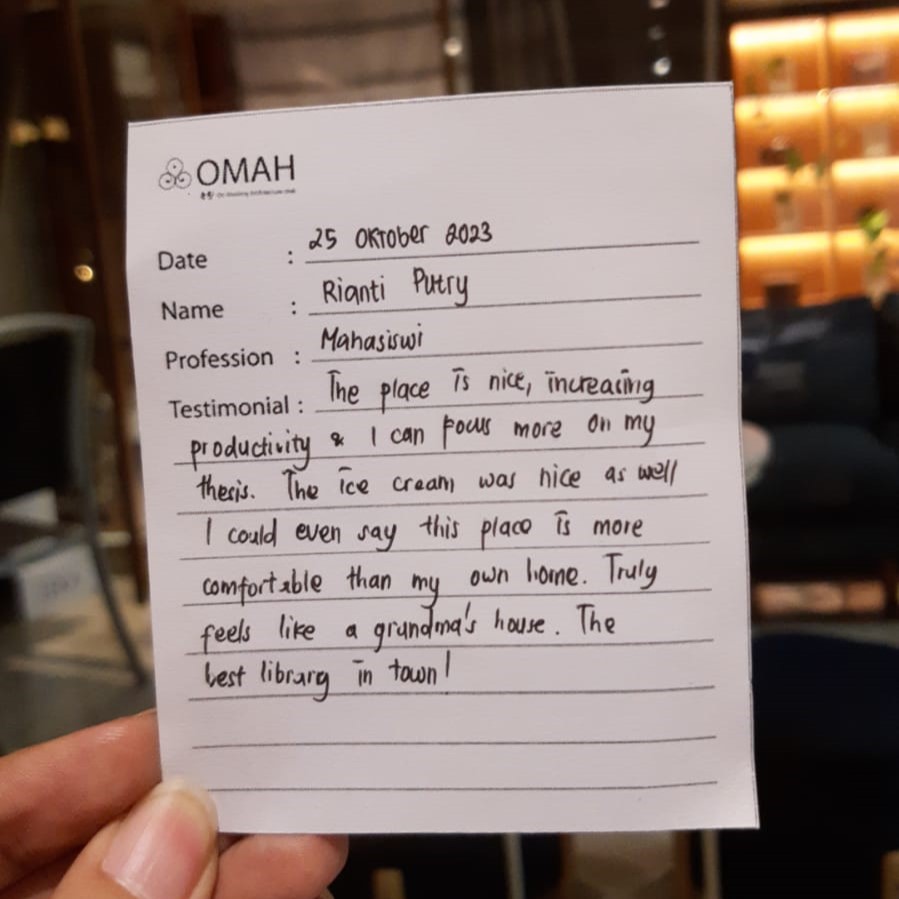 OMAH
Date : 25 Oktober 2023
Name : Rianti Putry
Profession : Mahasiswi
Testimonial : The place is nice, increasing
productivity & I can focus more on my
thesis. The ice cream was nice as well
I could even say this place is more
comfortable than my own home. Truly
feels like a grandma's house. The
best library in town!